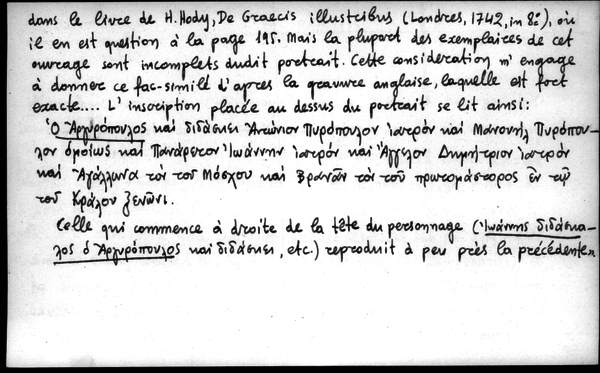 dans le livre de H. Hody, De Graecis illustribus (Londres, 1742, in 8º), où
il en est question à la page 195. Mais la plupart des exemplaires de cet
ouvrage sont incomplets dudit portrait. Cette considération m'engage
à donner ce fac-similé d'après la gravure anglaise, laquelle est fort
exacte.... L'inscription placée au dessus du portrait se lit ainsi:
Ὁ Ἀργυρόπουλος καὶ διδάσκει Ἀντώνιον Πυρόπουλον ἰατρόν καὶ Μανουὴλ Πυρόπου-
λον ὁμοίως καὶ Πανάρετον Ἰωάννην ἰατρόν καὶ Ἄγγελον Δημήτριον ἰατρόν
καὶ Ἀγάλλωνα τὸν τοῦ Μόσχου καὶ Βρανᾶν τὸν τοῦ πρωτομάστορος ἐν τῷ
τοῦ Κράλου ξενῶνι.
Celle qui commence à droite de la tête du personnage (Ἰωάννης διδάσκα-
λος ὁ Ἀργυρόπουλος καὶ διδάσκει, etc.) reproduit à peu près la précédente»